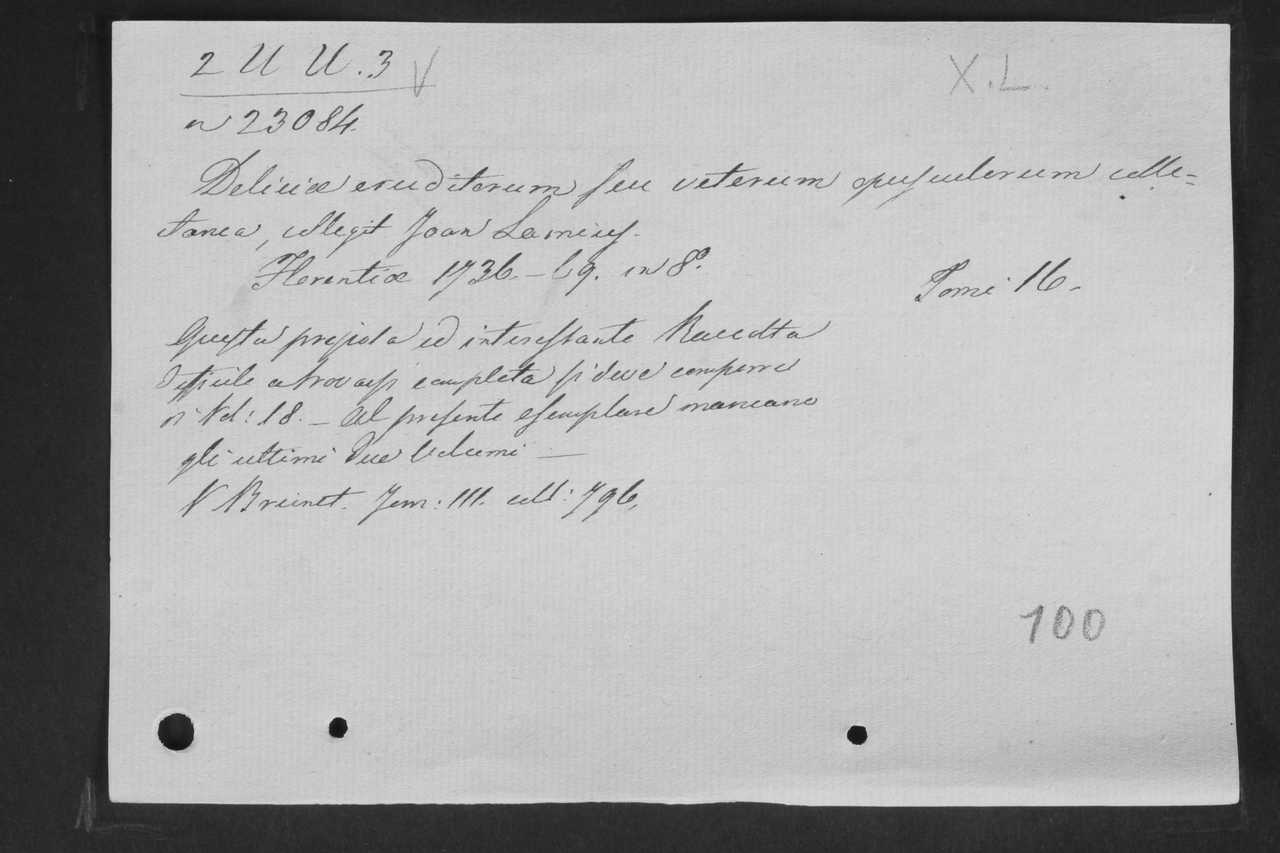 2 U U. 3 V
X. L.
n 23084.
Deliciæ eruditorum seu veterum opusculorum colle=
tanea, collegit Joan Lamius.
Florentiæ 1736 - 69. in 8º.
Tomi 16.
Questa pregiata ed interessante Raccolta
difficile a trovarsi completa si deve comporre
di Vol: 18. - Al presente esemplare mancano
gli ultimi due Volumi —
V Brunet. Tom: III. coll: 796.
100